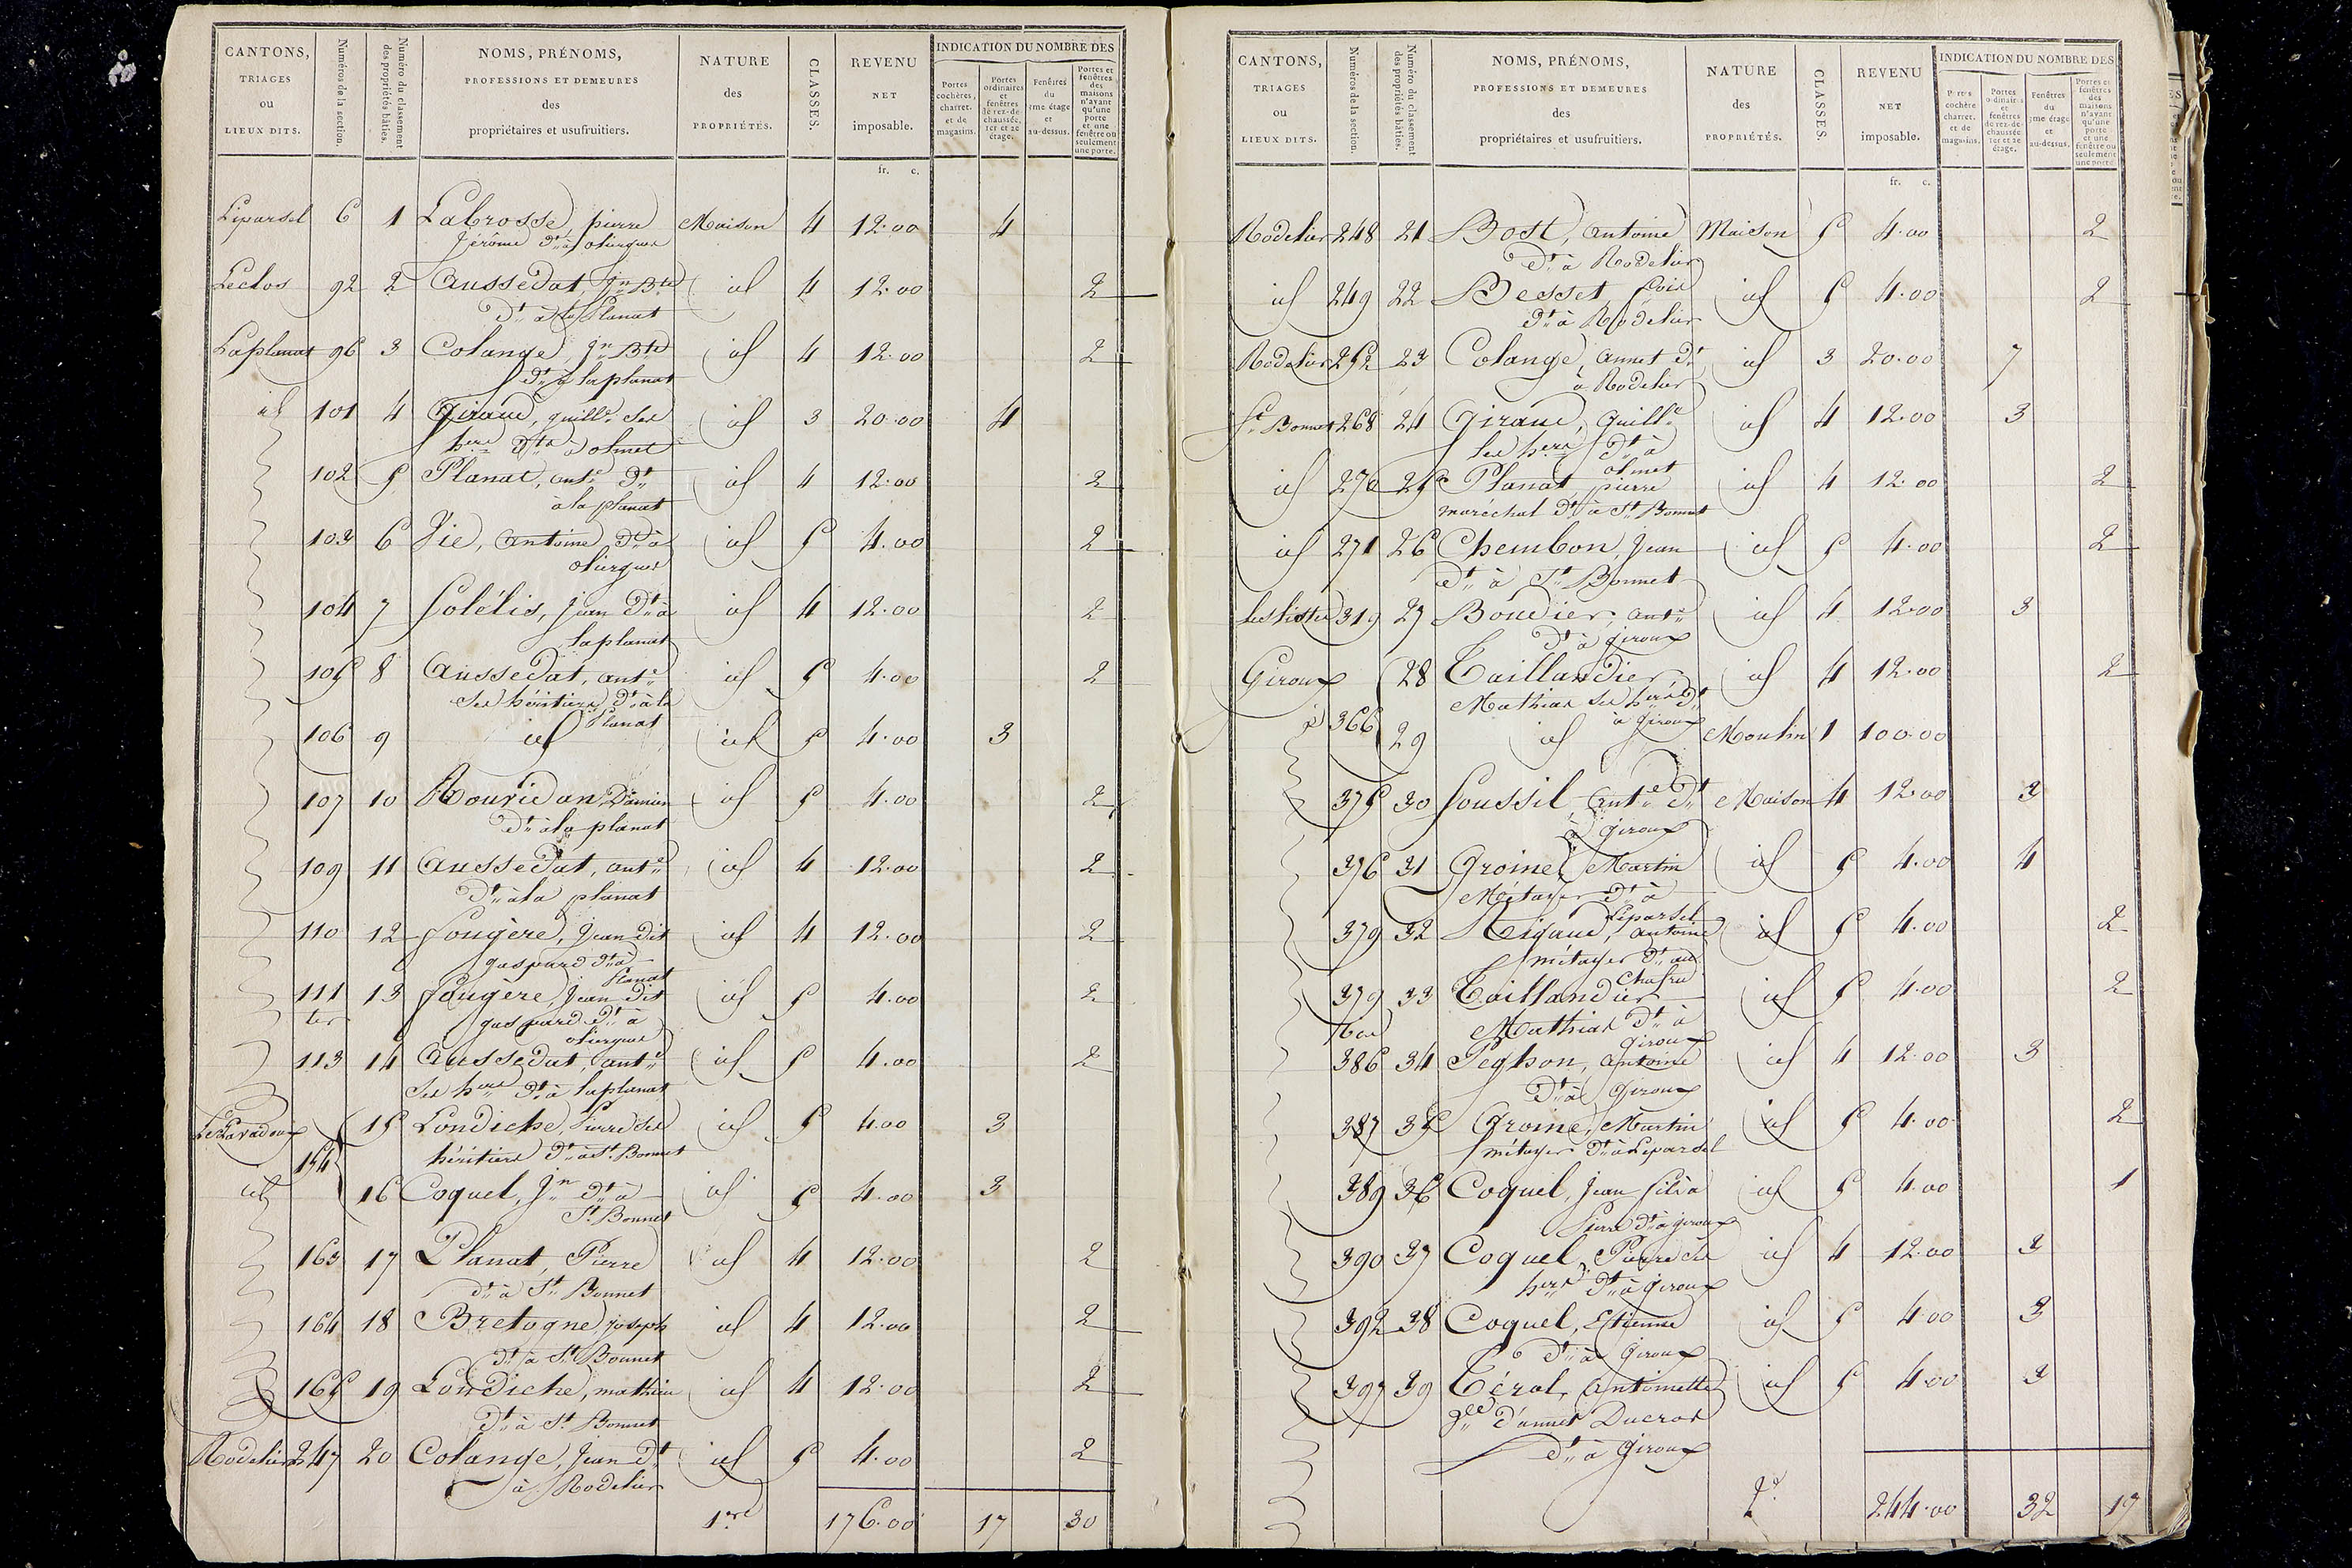 CANTONS, TRIAGES ou LIEUX DITS.
Numéros de la section.
Numéro du classement des propriétés bâties.
NOMS, PRÉNOMS, PROFESSIONS ET DEMEURES des propriétaires et usufruitiers.
NATURE des PROPRIÉTÉS.
CLASSES.
REVENU NET imposable.
INDICATION DU NOMBRE DES
Portes cochères, charret. et de magasins.
Portes ordinaires et fenêtres de rez-de-chaussée, 1er et 2e étage.
Fenêtres du 3me étage et au-dessus.
Portes et fenêtres des maisons n'ayant qu'une porte et une fenêtre ou seulement une porte.
fr. c.
Liparsel 6 1 Labrosse, pierre Maison 4 12.00 4
Jérôme dt. à oliergues
Leclos 92 2 Aussedat, Jn. Bte id 4 12.00 2
dt. à la Planat
Laplanat 96 3 Colange, Jn. Bte id 4 12.00 2
dt. à laplanat
id 101 4 Giraud, guille. ses id 3 20.00 4
hers. dt. à olmet
102 5 Planat, ante. dt. id 4 12.00 2
à la planat
103 6 Vie, antoine, dt. à id 5 4.00 2
oliergues
104 7 Solélis, jean dt. à id 4 12.00 2
laplanat
105 8 Aussedat, ante. id 5 4.00 2
ses héritiers dt. à la
Planat
106 9 id id 5 4.00 3
107 10 Rouridan, Damien id 5 4.00 2
dt. à la planat
109 11 Aussedat, ante. id 4 12.00 2
dt. à la planat
110 12 Fougère, Jean dit id 4 12.00 2
gaspard dt. à
Planat
111 13 Fougère, Jean dit id 5 4.00 2
ter gaspard dt. à
oliergues
113 14 Aussedat, ante. id 5 4.00 2
ses hers. dt. à laplanat
Le Garadoux 154 15 Londiche, Pierre ses id 5 4.00 3
héritiers dt. à St. Bonnet
id 16 Coquel, Jn. dt. à id 5 4.00 3
St. Bonnet
163 17 Planat, Pierre id 4 12.00 2
dt. à St. Bonnet
164 18 Bretogne, joseph id 4 12.00 2
dt. à St. Bonnet
165 19 Londiche, mathieu id 4 12.00 2
dt. à St. Bonnet
Rodelier 247 20 Colange, Jean dt. id 5 4.00 2
à Rodelier
1re 176.00 17 30
CANTONS, TRIAGES ou LIEUX DITS.
Numéros de la section.
Numéro du classement des propriétés bâties.
NOMS, PRÉNOMS, PROFESSIONS ET DEMEURES des propriétaires et usufruitiers.
NATURE des PROPRIÉTÉS.
CLASSES.
REVENU NET imposable.
INDICATION DU NOMBRE DES
Portes cochère charret. et de magasins.
Portes ordinaires et fenêtres de rez-de-chaussée 1er et 2e étage.
Fenêtres du 3me étage et au-dessus.
Portes et fenêtres des maisons n'ayant qu'une porte et une fenêtre ou seulement une porte
fr. c.
Rodelier 248 21 Bost, antoine Maison 5 4.00 2
dt. à Rodelier
id 249 22 Besset, id 5 4.00 2
dt. à Rodelier
Rodelier 252 23 Colange, annet dt. id 3 20.00 7
à Rodelier
St. Bonnet 268 24 Giraud, Guille. id 4 12.00 3
ses hers. dt. à
olmet
id 270 25 Planat, pierre id 4 12.00 2
marechal dt. à St. Bonnet
id 271 26 Chembon, Jean id 5 4.00 2
dt. à St. Bonnet
319 27 Boudier, ante. id 4 12.00 3
dt. à giroux
Giroux 28 Taillandier id 4 12.00 2
Mathias ses hers. dt.
à Giroux
id 366 29 id Moulin 1 100.00
375 30 Soussil, ante. dt. Maison 4 12.00 3
à giroux
376 31 Groine, Martin id 5 4.00 4
Métayer dt. à
Liparsel
379 32 Rigaud, antoine id 5 4.00 2
métayer dt. au
379 33 Taillandier id 5 4.00 2
bis Mathias dt. à
Giroux
386 34 Peghon, antoine id 4 12.00 3
dt. à Giroux
387 35 Groine, Martin id 5 4.00 2
métayer dt. à Liparsel
389 36 Coquel, Jean fils à id 5 4.00 1
Pierre dt. à giroux
390 37 Coquel, Pierre ses id 4 12.00 3
hers. dt. à giroux
392 38 Coquel, Etienne id 5 4.00 3
dt. à Giroux
397 39 Térol, antoinette id 5 4.00 3
d'annet Ducros
dt. à Giroux
2e. 244.00 32 19